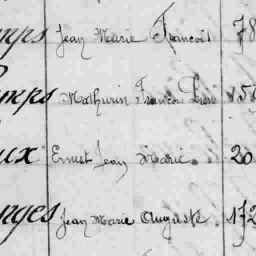 mps Jean Marie François 78
mps Mathurin François 850
ux Ernest Jean Marie. 20
nges Jean Marie Auguste. 172